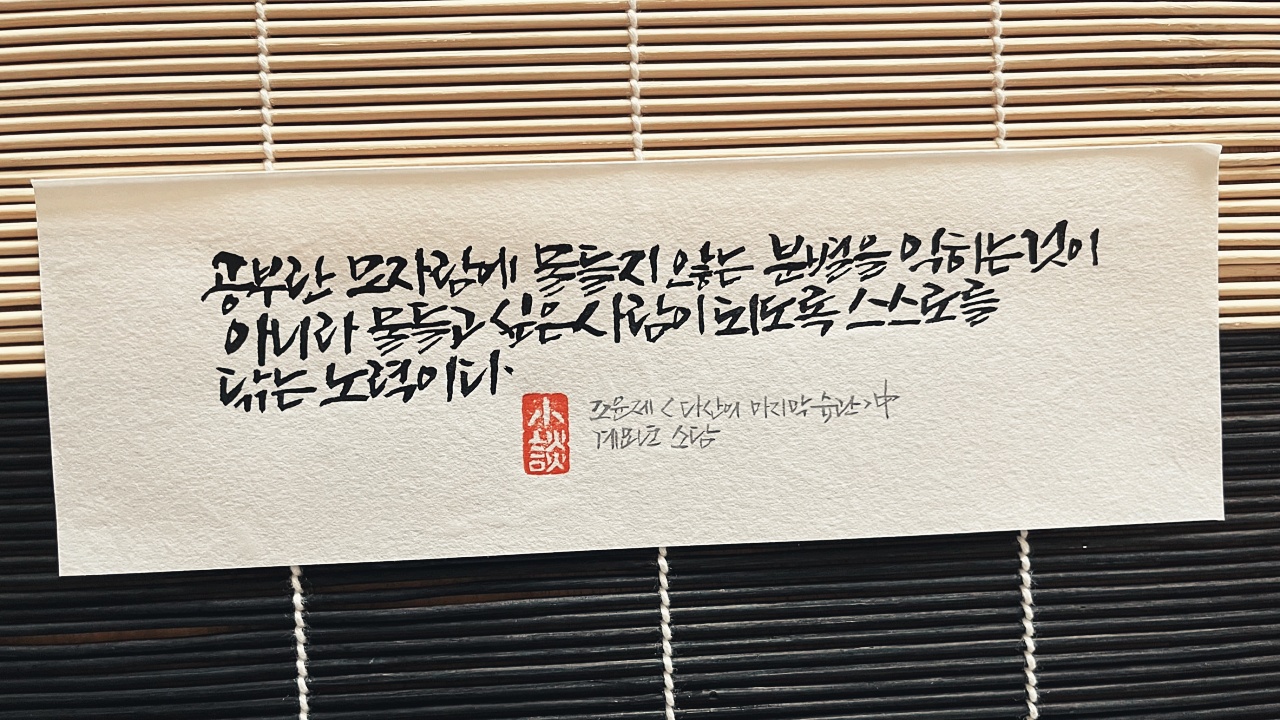 공부란 모자람에 물들지 않는 분별을 익히는 것이
아니라 물들고 싶은 사람이 되도록 스스로를
닦는 노력이다.
小談
조윤제 <다산의 마지막 습관> 中
계묘초 소담